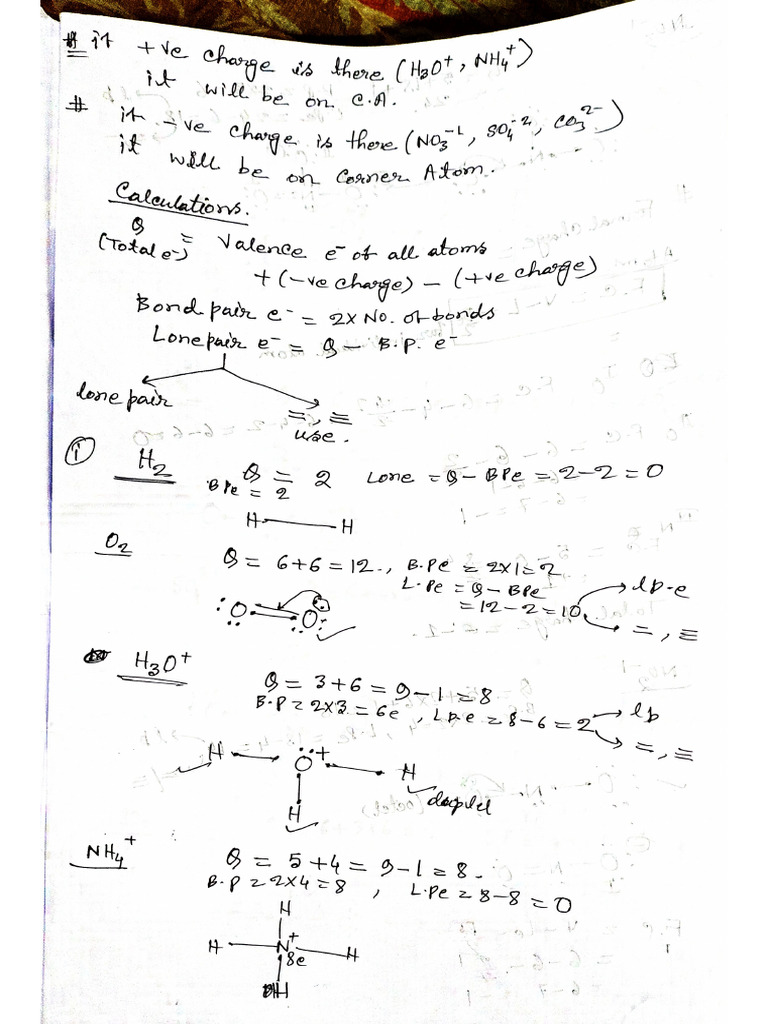 # it +ve charge is there (H3O+, NH4+)
it will be on C.A.
# it -ve charge is there (NO3-1, SO4-2, CO3 2-)
it will be on Corner Atom.
Calculations.
Q (Total e-) = Valence e- of all atoms
+ (-ve charge) - (+ve charge)
Bond pair e- = 2 x No. of bonds
Lone pair e- = Q - B.P. e-
lone pair
=, ≡
use.
① H2 Q = 2 Lone = Q - BPe = 2-2=0
BPe = 2
H—H
O2 Q = 6+6 = 12., B.Pe = 2x1=2
L.Pe = Q - BPe
= 12-2=10 lp-e
=, ≡
:O=O:
H3O+ Q = 3+6 = 9-1=8
B.P = 2x3 = 6e, L.Pe = 8-6=2 lp
=, ≡
H—O+—H
H
NH4+ Q = 5+4 = 9-1=8.
B.P = 2x4=8, L.Pe = 8-8=0
H
H—N+—H
8e
H